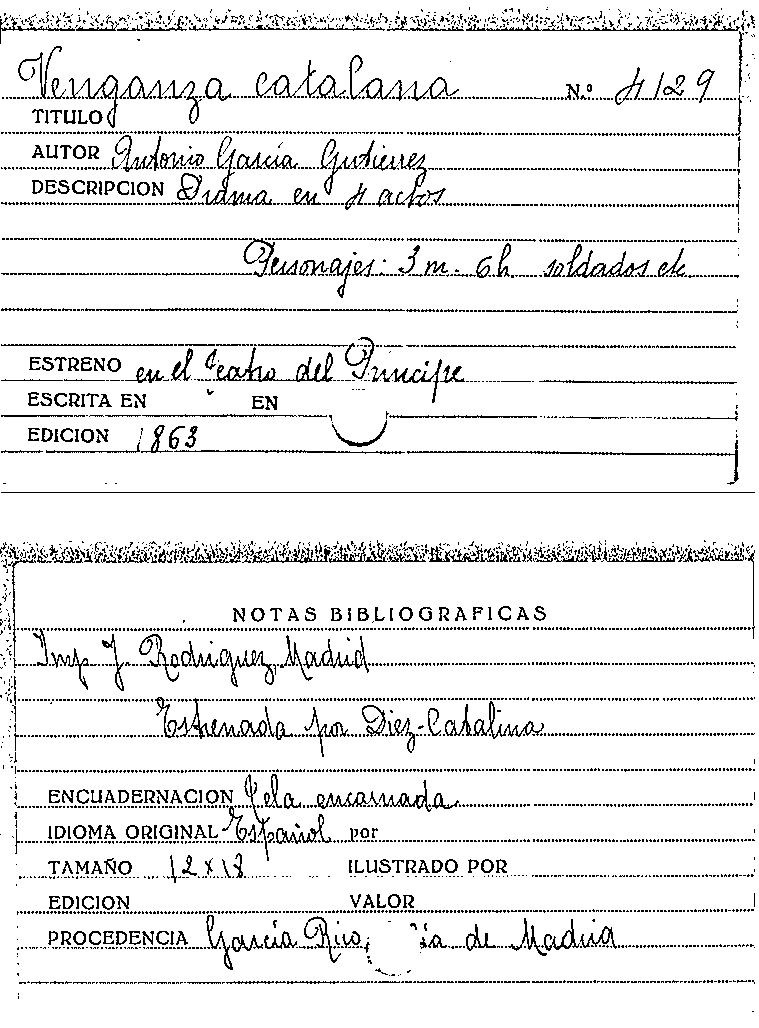 Venganza catalana N.º 4129
TITULO
AUTOR Antonio García Gutiérrez
DESCRIPCION Drama en 4 actos
Personajes: 3 m. 6 h. soldados etc
ESTRENO en el teatro del Principe
ESCRITA EN EN
EDICION 1863
NOTAS BIBLIOGRAFICAS
Imp J. Rodriguez Madrid
Estrenada por Diez-Catalina
ENCUADERNACION Tela encarnada
IDIOMA ORIGINAL Español por
TAMAÑO 12 x 18 ILUSTRADO POR
EDICION VALOR
PROCEDENCIA García Rico, de Madrid